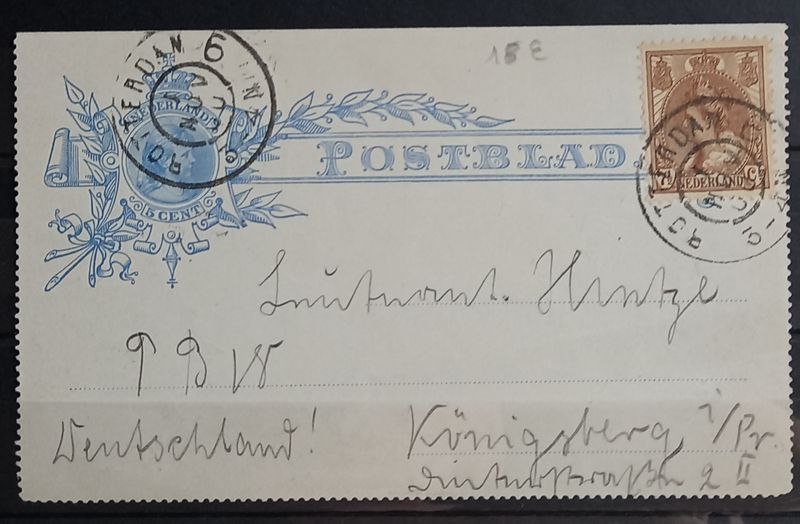 15 E
POSTBLAD
NEDERLAND
5 CENT
ROTTERDAM
NEDERLAND
ROTTERDAM
Leutnant. Hintze
T B W
Deutschland! Königsberg i/Pr.
2 II